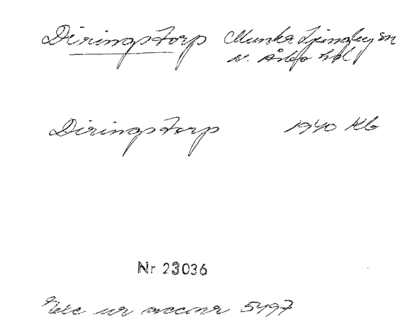 Diringstorp Munka Ljungby sn
N. Åsbo hd
Diringstorp 1940 Kb
Nr 23036
ur accnr 5497